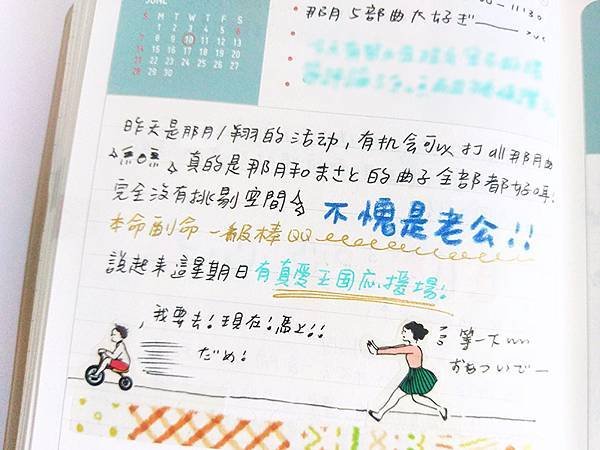 JUNE
S M T W T F S
1 2 3 4 5 6
7 8 9 10 11 12 13
14 15 16 17 18 19 20
21 22 23 24 25 26 27
28 29 30
那月5部曲大好き
昨天是那月/翔的活动,有机会可以打all那月曲
真的是那月和まさと的曲子全部都好听!
完全沒有挑剔空間 不愧是老公!!
本命副命一級棒QQ
說起来這星期日有真愛王国応援場!
,我要去!現在!馬上!!
だめ!
等一下
おちついてー